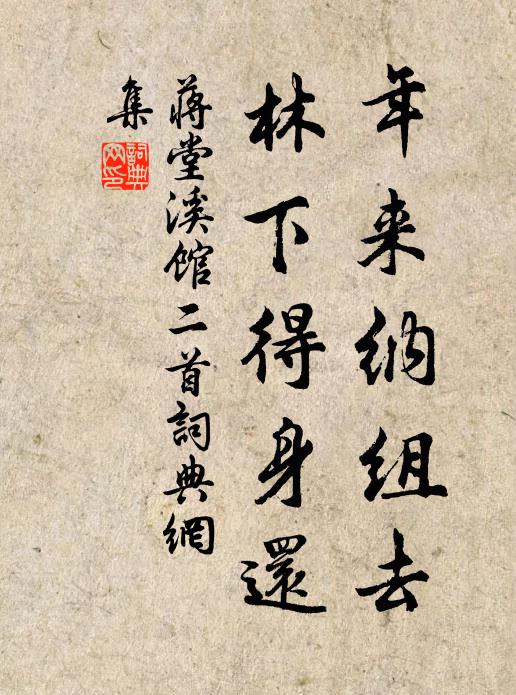 年来纳组去
林下得身還
蔣堂溪馆二首詞典網
集
詞典网印